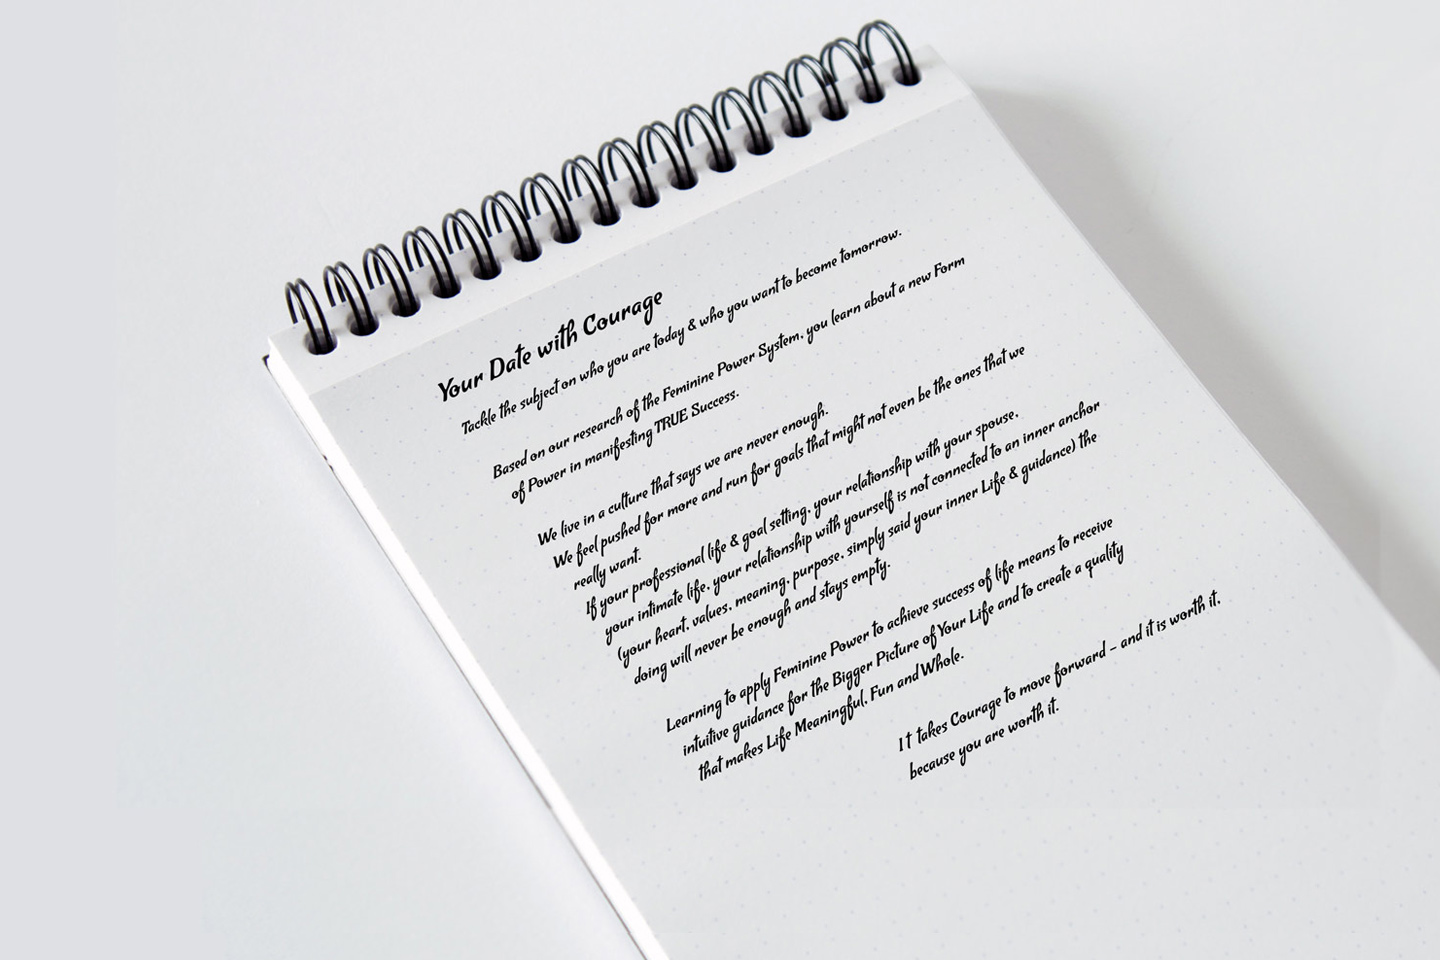 Your Date with Courage
Tackle the subject on who you are today & who you want to become tomorrow.
Based on our research of the Feminine Power System, you learn about a new Form
of Power in manifesting TRUE Success.
We live in a culture that says we are never enough.
We feel pushed for more and run for goals that might not even be the ones that we
really want.
If your professional life & goal setting, your relationship with your spouse,
your intimate life, your relationship with yourself is not connected to an inner anchor
(your heart, values, meaning, purpose, simply said your inner Life & guidance) the
doing will never be enough and stays empty.
Learning to apply Feminine Power to achieve success of life means to receive
intuitive guidance for the Bigger Picture of Your Life and to create a quality
that makes Life Meaningful, Fun and Whole.
It takes Courage to move forward – and it is worth it,
because you are worth it.